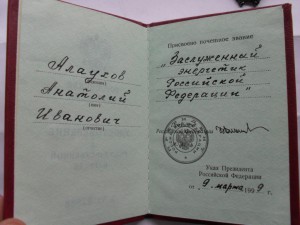 Алаухов
(фамилия)
Анатолий
(имя)
Иванович
(отчество)
Присвоено почетное звание
"Заслуженный
энергетик
Российской
Федерации"
Президент
Российской Федерации
Указ Президента
Российской Федерации
от 9 марта 1999 г.